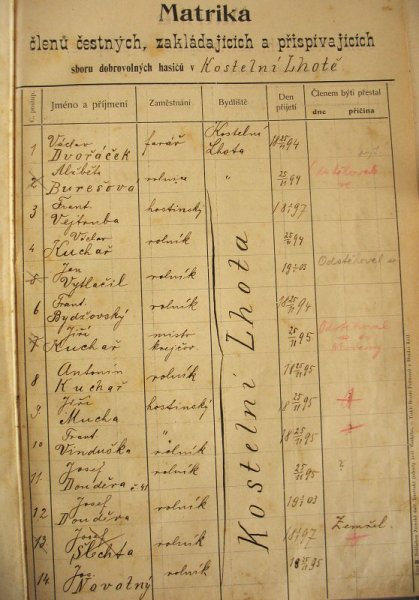 Matrika
členů čestných, zakládajících a přispívajících
sboru dobrovolných hasičů v Kostelní Lhotě
Č. postup. Jméno a příjmení Zaměstnání Bydliště Den přijetí Členem býti přestal
dne příčina
1 Václav Dvořáček farář Kostelní Lhota 18 25/11 94
2 Alžběta Burešova rolnice " 25/11 94
3 Frant. Vejtruba hostinský 18 97
4 Václav Kuchař rolník 94
5 Jan Vytlačil rolník 19 03 Odstěhoval se
6 Frant. Bydžovský rolník 18 25/11 94
7 Jiří Kuchař mistr krejčov. 25/11 95 Odstěhoval se
8 Antonín Kuchař rolník 18 25/11 95
9 Jiří Mucha hostinský 18 25/11 95
10 Frant. Vinduška " 18 25/11 95
11 Josef Donděra č. 41 rolník 25/11 95 ?
12 Josef Donděra rolník 19 03
13 Josef Šlechta rolník 18 97 Zemřel
14 Jos. Novotný rolník 18 95
Kostelní Lhota